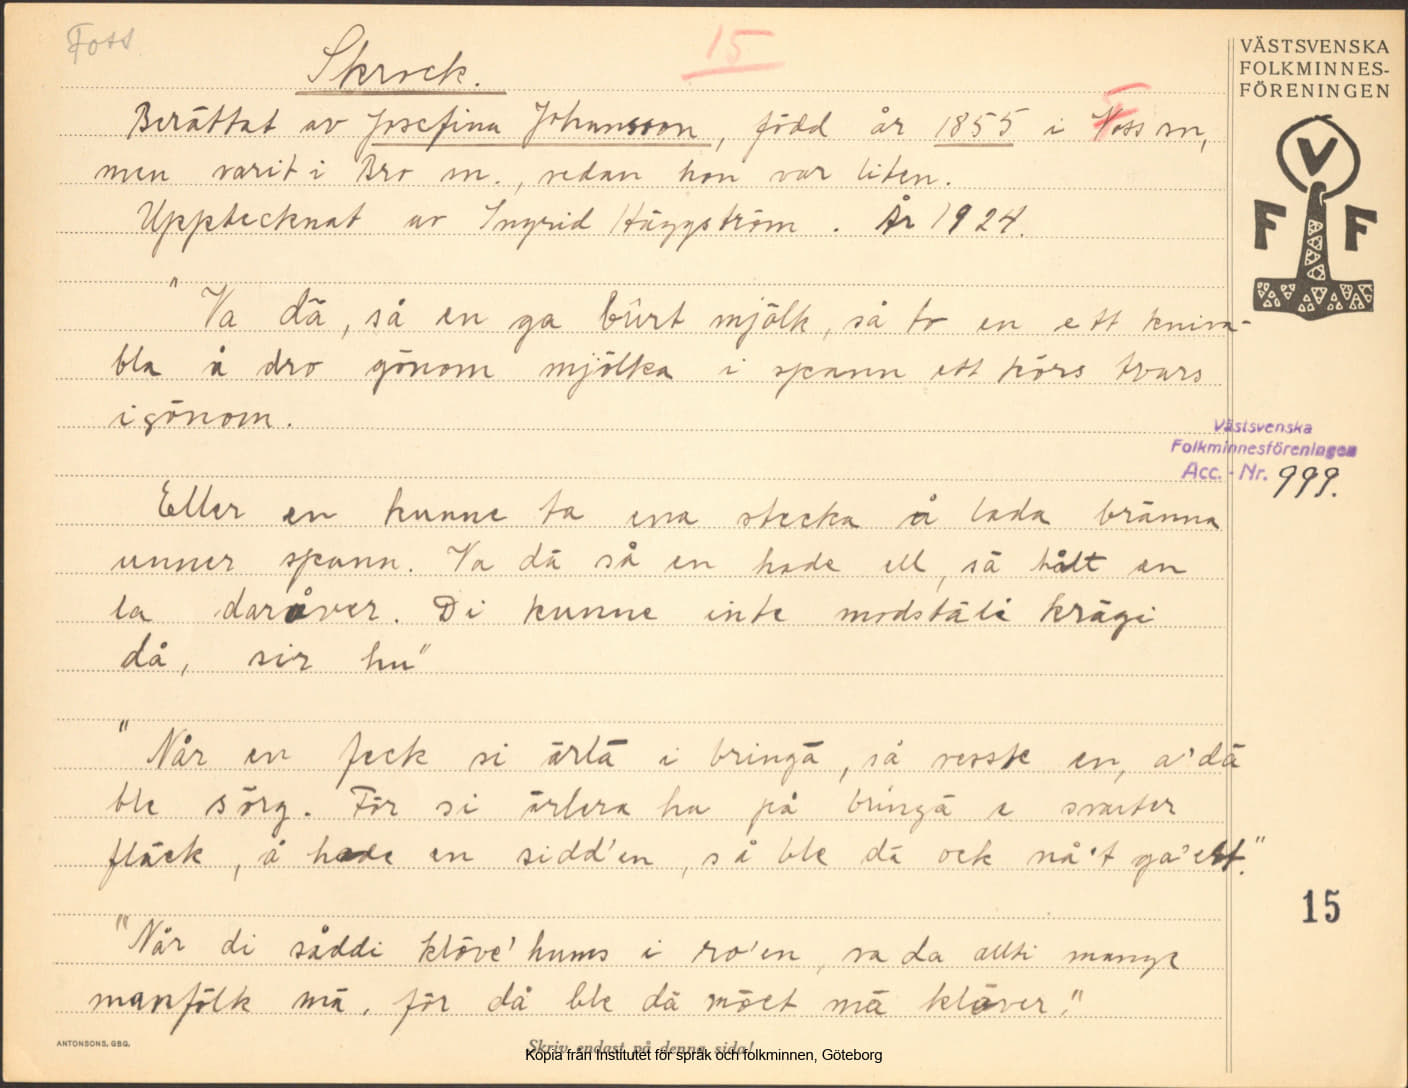 Foss
15
Skrock.
Berättat av Josefina Johansson, född år 1855 i Foss sn,
men varit i Bro sn., sedan hon var liten.
Upptecknat av Ingrid Häggström. År 1924.
"Va dä, så en ga bûrt mjölk, så to en ett kniva-
bla å dro gönom mjölka i spann ett körs tvars
igönom.
Eller en kunne ta ena stecka å lada bränna
unner spann. Va dä så en hade ell, sä hålt en
la daröver. Di kunne inte modstäli krägi
då, sir hu"
"Når en feck si ärlä i bringä, så visste en, a'dä
ble sörg. För si ärlera ha på bringä e svarter
fläck, å hade en sidd'en, så ble dä ock nå't ga'ett."
"Når di såddi klöve'hums i ro'en, va da allti mange
manfölk mä, för då ble dä möet mä klöver."
VÄSTSVENSKA
FOLKMINNES-
FÖRENINGEN
V
F F
Västsvenska
Folkminnesföreningen
Acc. - Nr. 999.
15
ANTONSONS, GBG.
Skriv endast på denna sida!
Kopia från Institutet för språk och folkminnen, Göteborg